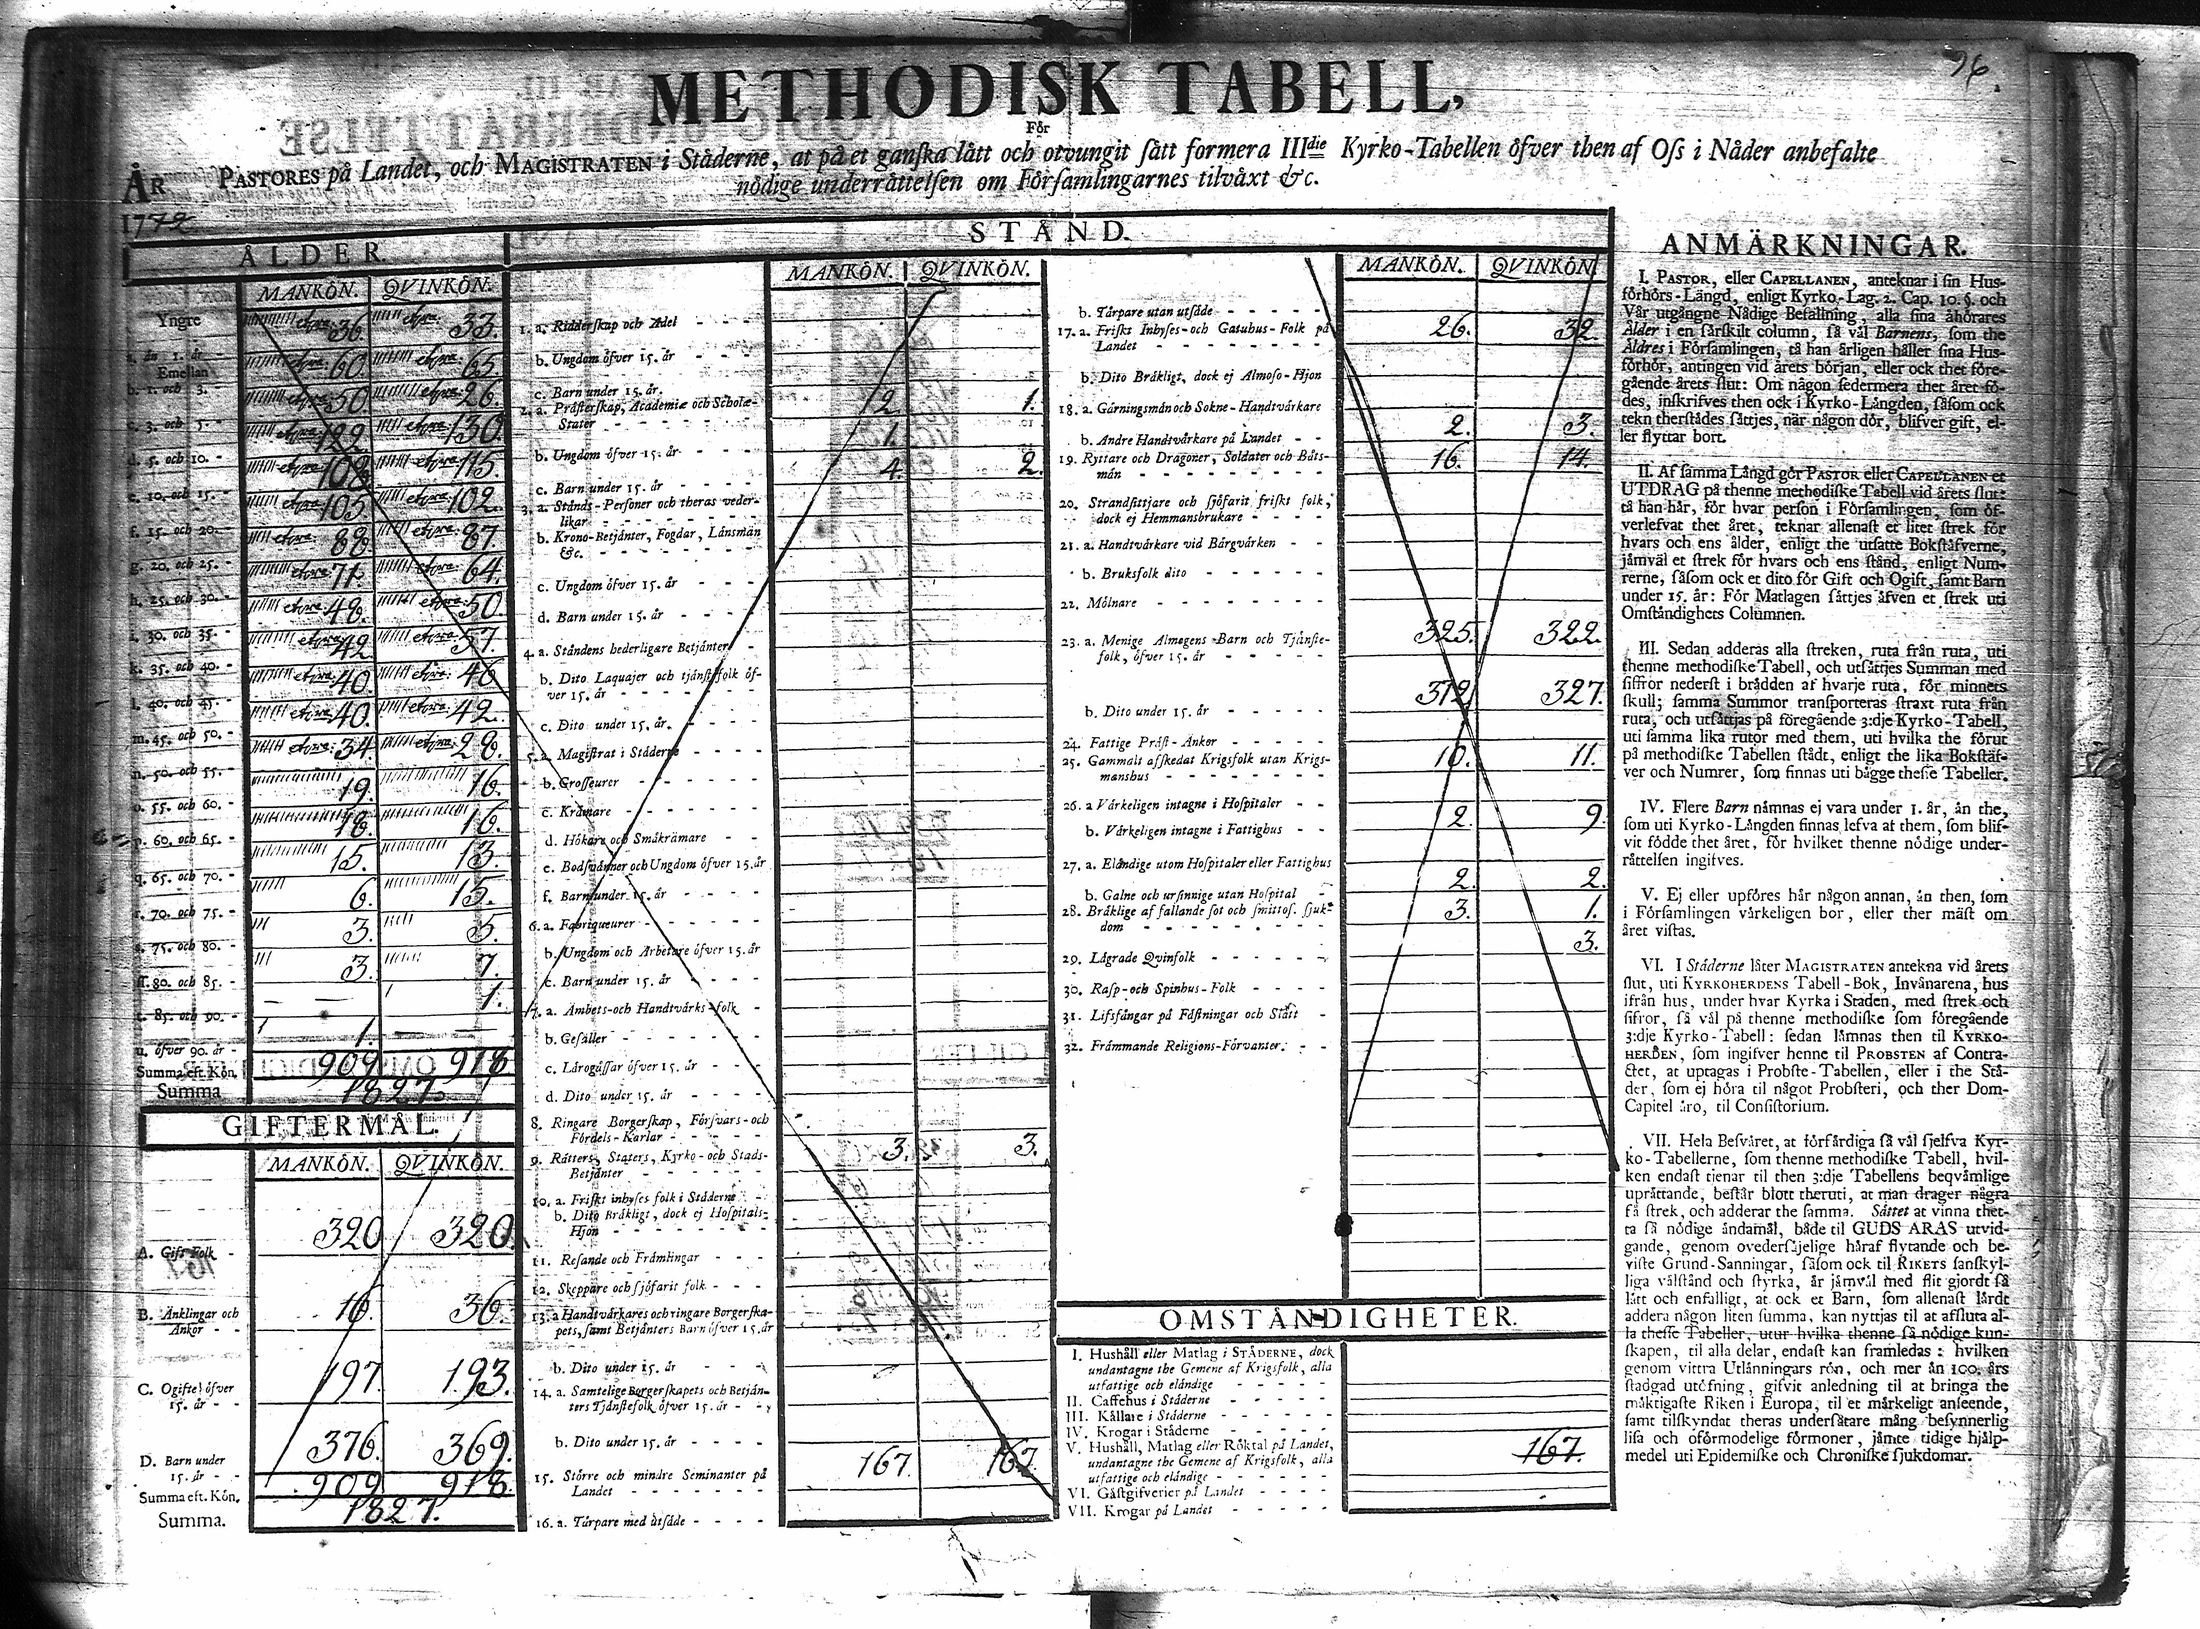 96
METHODISK TABELL,
För
ÅR PASTORES på Landet, och MAGISTRATEN i Städerne, at på et ganska lätt och otvungit sätt formera IIIdie Kyrko-Tabellen öfver then af Oss i Nåder anbefalte
nödige underrättelsen om Församlingarnes tilväxt &c.
1772
ÅLDER.
MANKÖN. QVINKÖN.
Yngre
a. än 1. år 36. 33.
Emellan
b. 1. och 3. 60. 65.
c. 3. och 5. 50. 26.
d. 5. och 10. 122. 130.
e. 10. och 15. 108. 115.
f. 15. och 20. 105. 102.
g. 20. och 25. 88. 87.
h. 25. och 30. 71. 64.
i. 30. och 35. 48. 50.
k. 35. och 40. 42. 57.
l. 40. och 45. 40. 46.
m. 45. och 50. 40. 42.
n. 50. och 55. 34. 28.
o. 55. och 60. 19. 16.
p. 60. och 65. 18. 16.
q. 65. och 70. 15. 13.
r. 70. och 75. 6. 15.
s. 75. och 80. 3. 5.
ss. 80. och 85. 3. 7.
t. 85. och 90. — — 1.
u. öfver 90. år 1. — —
Summa eft. Kön. 909. 918
Summa 1827.
GIFTERMÅL.
MANKÖN. QVINKÖN.
A. Gift Folk 320 320.
B. Änklingar och
Änkor 16. 36.
C. Ogifte öfver
15. år 197. 193.
D. Barn under
15. år 376. 369.
Summa eft. Kön. 909. 918.
Summa. 1827.
STÅND.
MANKÖN. QVINKÖN.
1. a. Ridderskap och Adel
b. Ungdom öfver 15. år
c. Barn under 15. år.
2. a. Prästerskap, Academiæ och Scholæ-
Stater 2. 1.
b. Ungdom öfver 15. år 1.
c. Barn under 15. år 4. 2.
3. a. Stånds-Personer och theras veder-
likar
b. Krono-Betjänter, Fogdar, Länsmän
&c.
c. Ungdom öfver 15. år
d. Barn under 15. år
4. a. Ståndens hederligare Betjänter
b. Dito Laquajer och tjänstefolk öf-
ver 15. år
c. Dito under 15. år.
5. a. Magistrat i Städerne
b. Grosseurer
c. Krämare
d. Hökare och Småkrämare
e. Bodsvänner och Ungdom öfver 15. år
f. Barn under 15. år
6. a. Fabriqueurer
b. Ungdom och Arbetare öfver 15. år
c. Barn under 15. år
7. a. Ämbets-och Handtvärks-folk
b. Gesäller
c. Lärogåssar öfver 15. år
d. Dito under 15. år
8. Ringare Borgerskap, Försvars-och
Fördels-Karlar
9. Rätters, Staters, Kyrko-och Stads-
Betjänter 3. 3.
10. a. Friskt inhyses folk i Städerne
b. Dito Bräkligt, dock ej Hospitals-
Hjon
11. Resande och Främlingar
12. Skeppare och sjöfarit folk
13. a. Handtvärkares och ringare Borgerska-
pets, samt Betjänters Barn öfver 15. år
b. Dito under 15. år
14. a. Samtelige Borgerskapets och Betjän-
ters Tjänstefolk öfver 15. år
b. Dito under 15. år
15. Större och mindre Seminanter på
Landet 167. 167.
16. a. Tårpare med utsäde
MANKÖN. QVINKÖN
b. Tårpare utan utsäde
17. a. Friskt Inhyses-och Gatuhus-Folk på
Landet 26. 32.
b. Dito Bräkligt, dock ej Almoso-Hjon
18. a. Gärningsmän och Sokne-Handtvärkare
b. Andre Handtvärkare på Landet 2. 3.
19. Ryttare och Dragoner, Soldater och Båts-
män 16. 14.
20. Strandsittjare och sjöfarit friskt folk,
dock ej Hemmansbrukare
21. a. Handtvärkare vid Bärgvärken
b. Bruksfolk dito
22. Mölnare
23. a. Menige Almogens Barn och Tjänste-
folk, öfver 15. år 325. 322.
b. Dito under 15. år 372. 327.
24. Fattige Präst-Änkor
25. Gammalt afskedat Krigsfolk utan Krigs-
manshus 10. 11.
26. a Värkeligen intagne i Hospitaler
b. Värkeligen intagne i Fattighus 2. 9.
27. a. Eländige utom Hospitaler eller Fattighus
b. Galne och ursinnige utan Hospital 2. 2.
28. Bräklige af fallande sot och smittos. sjuk-
dom 3. 1.
29. Lägrade Qvinfolk 3.
30. Rasp-och Spinhus-Folk
31. Lifsfångar på Fästningar och Slått
32. Främmande Religions-Förvanter.
OMSTÄNDIGHETER.
I. Hushåll eller Matlag i STÄDERNE, dock
undantagne the Gemene af Krigsfolk, alla
utfattige och eländige
II. Caffehus i Städerne
III. Källare i Städerne
IV. Krogar i Städerne
V. Hushåll, Matlag eller Röktal på Landet,
undantagne the Gemene af Krigsfolk, alla
utfattige och eländige 167.
VI. Gästgifverier på Landet
VII. Krogar på Landet
ANMÄRKNINGAR.
I. PASTOR, eller CAPELLANEN, anteknar i sin Hus-
förhörs-Längd, enligt Kyrko-Lag. 2. Cap. 10. §. och
Vår utgångne Nådige Befallning, alla sina åhörares
Ålder i en särskilt column, så väl Barnens, som the
Äldres i Församlingen, tå han årligen håller sina Hus-
förhör, antingen vid årets början, eller ock thet före-
gående årets slut: Om någon sedermera thet året fö-
des, inskrifves then ock i Kyrko-Längden, såsom ock
tekn therstädes sättjes, när någon dör, blifver gift, el-
ler flyttar bort.
II. Af samma Längd gör PASTOR eller CAPELLANEN et
UTDRAG på thenne methodiske Tabell vid årets slut:
tå han här, för hvar person i Församlingen, som öf-
verlefvat thet året, teknar allenast et litet strek för
hvars och ens ålder, enligt the utsatte Bokstäfverne,
jämväl et strek för hvars och ens stånd, enligt Num-
rerne, såsom ock et dito för Gift och Ogift, samt Barn
under 15. år: För Matlagen sättjes äfven et strek uti
Omständighets Columnen.
III. Sedan adderas alla streken, ruta från ruta, uti
thenne methodiske Tabell, och utsättjes Summan med
siffror nederst i brädden af hvarje ruta, för minnets
skull; samma Summor transporteras straxt ruta från
ruta, och utsättjas på föregående 3:dje Kyrko-Tabell,
uti samma lika rutor med them, uti hvilka the förut
på methodiske Tabellen stådt, enligt the lika Bokstäf-
ver och Numrer, som finnas uti bägge thesse Tabeller.
IV. Flere Barn nämnas ej vara under 1. år, än the,
som uti Kyrko-Längden finnas lefva af them, som blif-
vit födde thet året, för hvilket thenne nödige under-
rättelsen ingifves.
V. Ej eller upföres här någon annan, än then, som
i Församlingen värkeligen bor, eller ther mäst om
året vistas.
VI. I Städerne låter MAGISTRATEN antekna vid årets
slut, uti KYRKOHERDENS Tabell-Bok, Invånarena, hus
ifrån hus, under hvar Kyrka i Staden, med strek och
sifror, så väl på thenne methodiske som föregående
3:dje Kyrko-Tabell: sedan lämnas then til KYRKO-
HERDEN, som ingifver henne til PROBSTEN af Contra-
ctet, at uptagas i Probste-Tabellen, eller i the Stä-
der, som ej höra til något Probsteri, och ther Dom-
Capitel äro, til Consistorium.
VII. Hela Besväret, at förfärdiga så väl sjelfva Kyr-
ko-Tabellerne, som thenne methodiske Tabell, hvil-
ken endast tjenar til then 3:dje Tabellens beqvämlige
uprättande, består blott theruti, at man drager några
få strek, och adderar the samma. Sättet at vinna thet-
ta så nödige ändamål, både til GUDS ÄRAS utvid-
gande, genom ovedersäjelige häraf flytande och be-
viste Grund-Sanningar, såsom ock til RIKETS sanskyl-
liga välstånd och styrka, är jämväl med flit gjordt så
lätt och enfalligt, at ock et Barn, som allenast lärdt
addera någon liten summa, kan nyttjas til at afsluta al-
la thesse Tabeller, utur hvilka thenne så nödige kun-
skapen, til alla delar, endast kan framledas: hvilken
genom vittra Utlänningars rön, och mer än 100. års
stadgad utöfning, gifvit anledning til at bringa the
mäktigaste Riken i Europa, til et märkeligt anseende,
samt tilskyndat theras undersåtare mång besynnerlig
lisa och oförmodelige förmoner, jämte tidige hjälp-
medel uti Epidemiske och Chroniske sjukdomar.